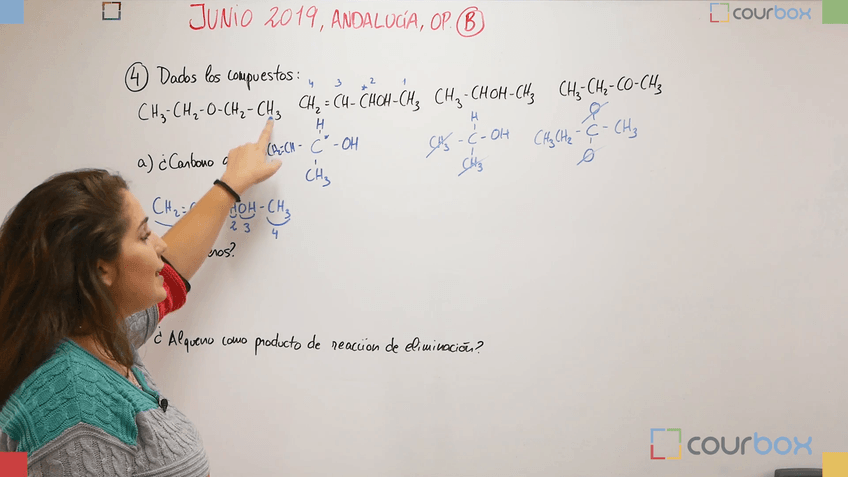 JUNIO 2019, ANDALUCÍA, OP. B
courbox
4 Dados los compuestos:
CH3-CH2-O-CH2-CH3
4 3 *2 1
CH2=CH-CHOH-CH3
CH3-CHOH-CH3
CH3-CH2-CO-CH3
H
CH2=CH- C* -OH
CH3
H
CH3 - C - OH
CH3
O
CH3CH2 - C - CH3
O
a) ¿Carbono
CH2= HOH-CH3
2 3 4
¿Alqueno como producto de reacción de eliminación?
courbox